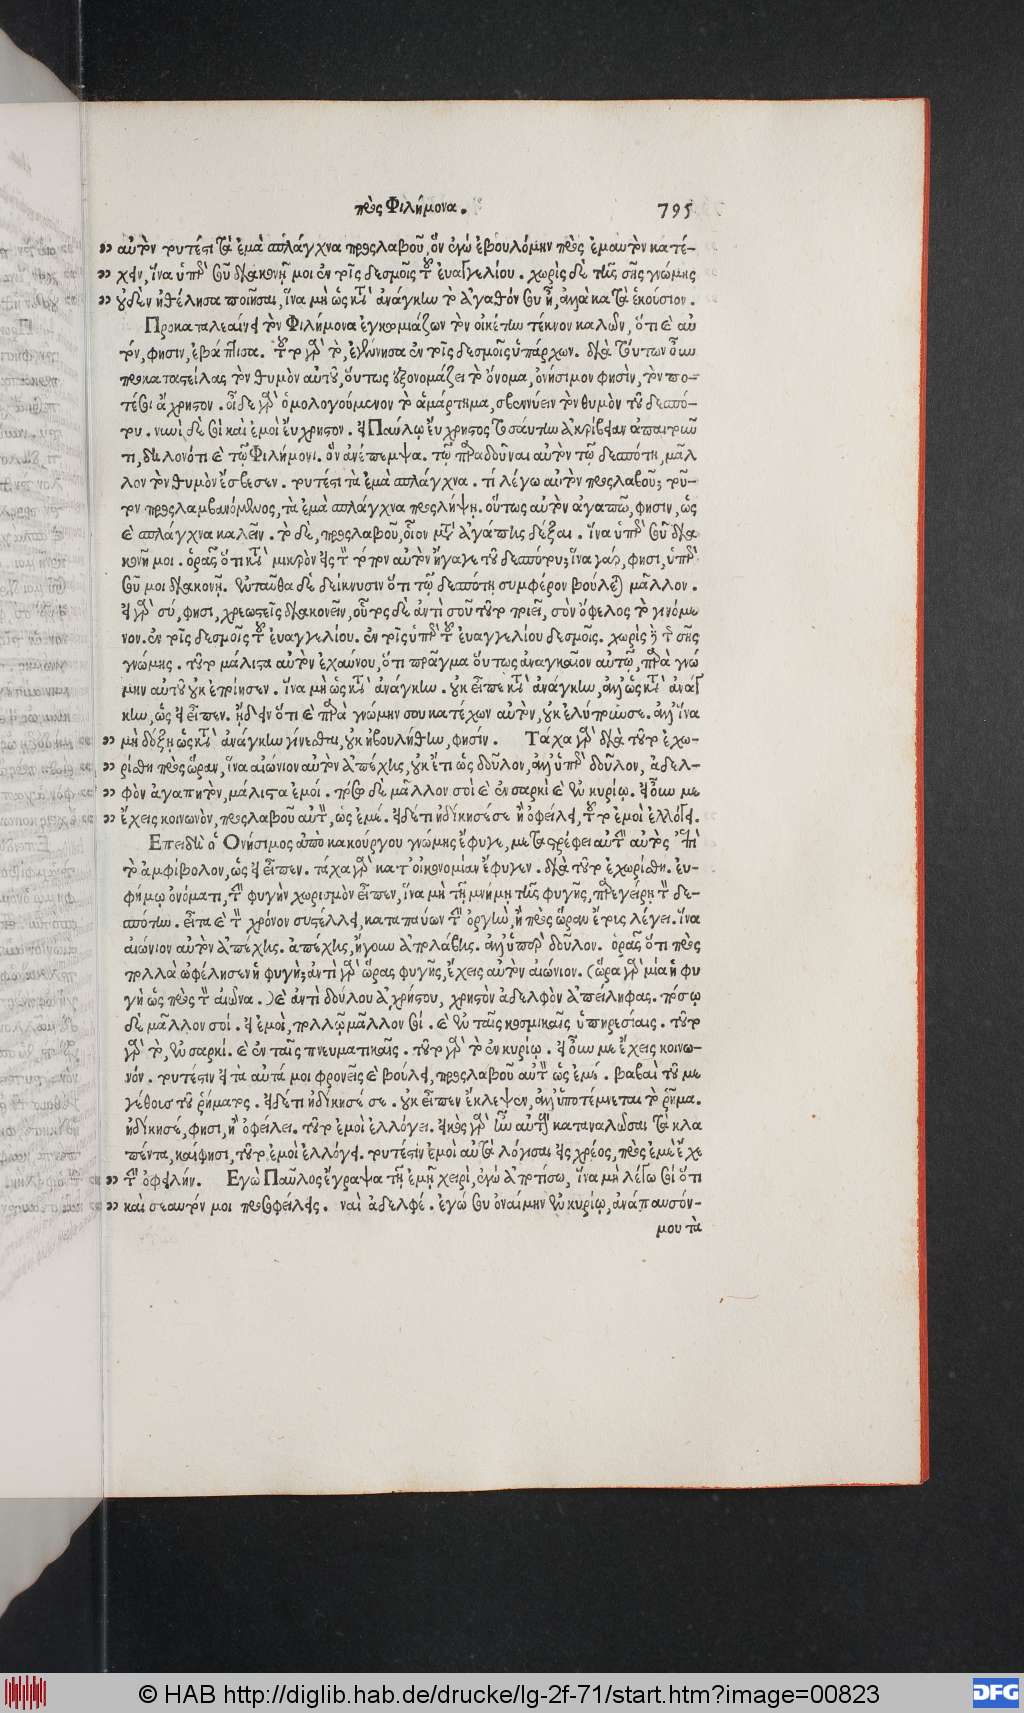 πρὸς Φιλήμονα. 795
αὐτὸν τουτέστι τὰ ἐμὰ σπλάγχνα προσλαβοῦ, ὃν ἐγὼ ἐβουλόμην πρὸς ἐμαυτὸν κατέ-
χειν, ἵνα ὑπὲρ σοῦ διακονῇ μοι ἐν τοῖς δεσμοῖς τοῦ εὐαγγελίου. χωρὶς δὲ τῆς σῆς γνώμης
οὐδὲν ἠθέλησα ποιῆσαι, ἵνα μὴ ὡς κατὰ ἀνάγκην τὸ ἀγαθόν σου ᾖ, ἀλλὰ κατὰ ἑκούσιον.
Προκαταλεαίνει τὸν Φιλήμονα ἐγκωμιάζων τὸν οἰκέτην τέκνον καλῶν, ὅτι καὶ αὐ
τόν, φησιν, ἐβάπτισα. τοῦτο γὰρ τὸ, ἐγέννησα ἐν τοῖς δεσμοῖς ὑπάρχων. διὰ τούτων οὖν
προκαταστείλας τὸν θυμὸν αὐτοῦ, οὕτως ἐξονομάζει τὸ ὄνομα, ὀνήσιμον φησὶν, τὸν πο-
τέ σοι ἄχρηστον. οἶδε γὰρ ὁμολογούμενον τὸ ἁμάρτημα, σβεννύειν τὸν θυμὸν τοῦ δεσπό-
του. νυνὶ δὲ σοὶ καὶ ἐμοὶ εὔχρηστον. εἰ Παύλῳ εὔχρηστος τοσαύτην ἀκρίβειαν ἀπαιτοῦν
τι, δηλονότι καὶ τῷ Φιλήμονι. ὃν ἀνέπεμψα. τῷ παραδοῦναι αὐτὸν τῷ δεσπότῃ, μᾶλ
λον τὸν θυμὸν ἔσβεσεν. τουτέστι τὰ ἐμὰ σπλάγχνα. τί λέγω αὐτὸν προσλαβοῦ; τοῦ-
τον προσλαμβανόμενος, τὰ ἐμὰ σπλάγχνα προσλήψῃ. οὕτως αὐτὸν ἀγαπῶ, φησιν, ὡς
καὶ σπλάγχνα καλεῖν. τὸ δὲ, προσλαβοῦ, οἷον μετὰ ἀγάπης δέξαι. ἵνα ὑπὲρ σοῦ δια
κονῇ μοι. ὁρᾷς ὅτι κατὰ μικρὸν εἰς τὸν τόπον αὐτὸν ἤγαγε τοῦ δεσπότου; ἵνα γάρ, φησι, ὑπὲρ
σοῦ μοι διακονῇ. ἐνταῦθα δὲ δείκνυσιν ὅτι τῷ δεσπότῃ συμφέρον βούλεται μᾶλλον.
εἰ γὰρ σύ, φησι, χρεωστεῖς διακονεῖν, οὗτος δὲ ἀντὶ σοῦ τοῦτο ποιεῖ, σὸν ὄφελος τὸ γινόμε
νον. ἐν τοῖς δεσμοῖς τοῦ εὐαγγελίου. ἐν τοῖς ὑπὲρ τοῦ εὐαγγελίου δεσμοῖς. χωρὶς δὲ τῆς σῆς
γνώμης. τοῦτο μάλιστα αὐτὸν ἐχαύνου, ὅτι πρᾶγμα οὕτως ἀναγκαῖον αὐτῷ, παρὰ γνώ
μην αὐτοῦ οὐκ ἐποίησεν. ἵνα μὴ ὡς κατὰ ἀνάγκην. οὐκ εἶπε κατὰ ἀνάγκην, ἀλλ' ὡς κατὰ ἀνάγ
κην, ὡς εἰ εἶπεν. ᾔδειν ὅτι καὶ παρὰ γνώμην σου κατέχων αὐτὸν, οὐκ ἐλύπησα σε. ἀλλ' ἵνα
μὴ δόξῃ ὡς κατὰ ἀνάγκην γίνεσθαι, οὐκ ἠβουλήθην, φησίν. Τάχα γὰρ διὰ τοῦτο ἐχω-
ρίσθη πρὸς ὥραν, ἵνα αἰώνιον αὐτὸν ἀπέχῃς, οὐκ ἔτι ὡς δοῦλον, ἀλλ' ὑπὲρ δοῦλον, ἀδελ-
φὸν ἀγαπητὸν, μάλιστα ἐμοί. πόσῳ δὲ μᾶλλον σοὶ καὶ ἐν σαρκὶ καὶ ἐν κυρίῳ. εἰ οὖν με
ἔχεις κοινωνὸν, προσλαβοῦ αὐτὸν, ὡς ἐμέ. εἰ δέ τι ἠδίκησέ σε ἢ ὀφείλει, τοῦτο ἐμοὶ ἐλλόγει.
Ἐπειδὴ ὁ Ὀνήσιμος ἀπὸ κακούργου γνώμης ἔφυγε, μεταστρέφει αὐτὴν αὐτὸς ἐπὶ
τὸ ἀμφίβολον, ὡς εἰ εἶπεν. τάχα γὰρ κατ' οἰκονομίαν ἔφυγεν. διὰ τοῦτο ἐχωρίσθη. εὐ-
φήμῳ ὀνόματι, τὴν φυγὴν χωρισμὸν εἶπεν, ἵνα μὴ τῇ μνήμῃ τῆς φυγῆς, παρεγείρῃ τὸν δε-
σπότην. εἶτα καὶ τὸν χρόνον συστέλλει, καταπαύων τὴν ὀργὴν, ἢ πρὸς ὥραν ἔτος λέγει. ἵνα
αἰώνιον αὐτὸν ἀπέχῃς. ἀπέχῃς, ἤγουν ἀπολάβῃς. ἀλλ' ὑπὲρ δοῦλον. ὁρᾷς ὅτι πρὸς
πολλὰ ὠφέλησεν ἡ φυγή; ἀντὶ γὰρ ὥρας φυγῆς, ἔχεις αὐτὸν αἰώνιον. (ὥρα γὰρ μία ἡ φυ
γὴ ὡς πρὸς τὸν αἰῶνα.) καὶ ἀντὶ δούλου ἀχρήστου, χρηστὸν ἀδελφὸν ἀπείληφας. πόσῳ
δὲ μᾶλλον σοί. εἰ ἐμοὶ, πολλῷ μᾶλλον σοί. καὶ ἐν ταῖς κοσμικαῖς ὑπηρεσίαις. τοῦτο
γὰρ τὸ, ἐν σαρκί. καὶ ἐν ταῖς πνευματικαῖς. τοῦτο γὰρ τὸ ἐν κυρίῳ. εἰ οὖν με ἔχεις κοινω-
νόν. τουτέστιν εἰ τὰ αὐτά μοι φρονεῖς καὶ βούλει, προσλαβοῦ αὐτὸν ὡς ἐμέ. βαβαὶ τοῦ με
γέθους τοῦ ῥήματος. εἰ δέ τι ἠδίκησέ σε. οὐκ εἶπεν ἔκλεψεν, ἀλλ' ὑποτέμνεται τὸ ῥῆμα.
ἠδίκησέ, φησι, ἢ ὀφείλει. τοῦτο ἐμοὶ ἐλλόγει. εἰκὸς γὰρ ἦν αὐτὸν καταναλῶσαι τὰ κλα
πέντα, καί φησι, τοῦτο ἐμοὶ ἐλλόγει. τουτέστιν ἐμοὶ αὐτὰ λόγισαι εἰς χρέος, πρὸς ἐμὲ ἔχε
τὴν ὀφειλήν. Ἐγὼ Παῦλος ἔγραψα τῇ ἐμῇ χειρὶ, ἐγὼ ἀποτίσω, ἵνα μὴ λέγω σοι ὅτι
καὶ σεαυτόν μοι προσοφείλεις. ναὶ ἀδελφέ. ἐγώ σου ὀναίμην ἐν κυρίῳ, ἀνάπαυσόν-
μου τὰ
© HAB http://diglib.hab.de/drucke/lg-2f-71/start.htm?image=00823
DFG